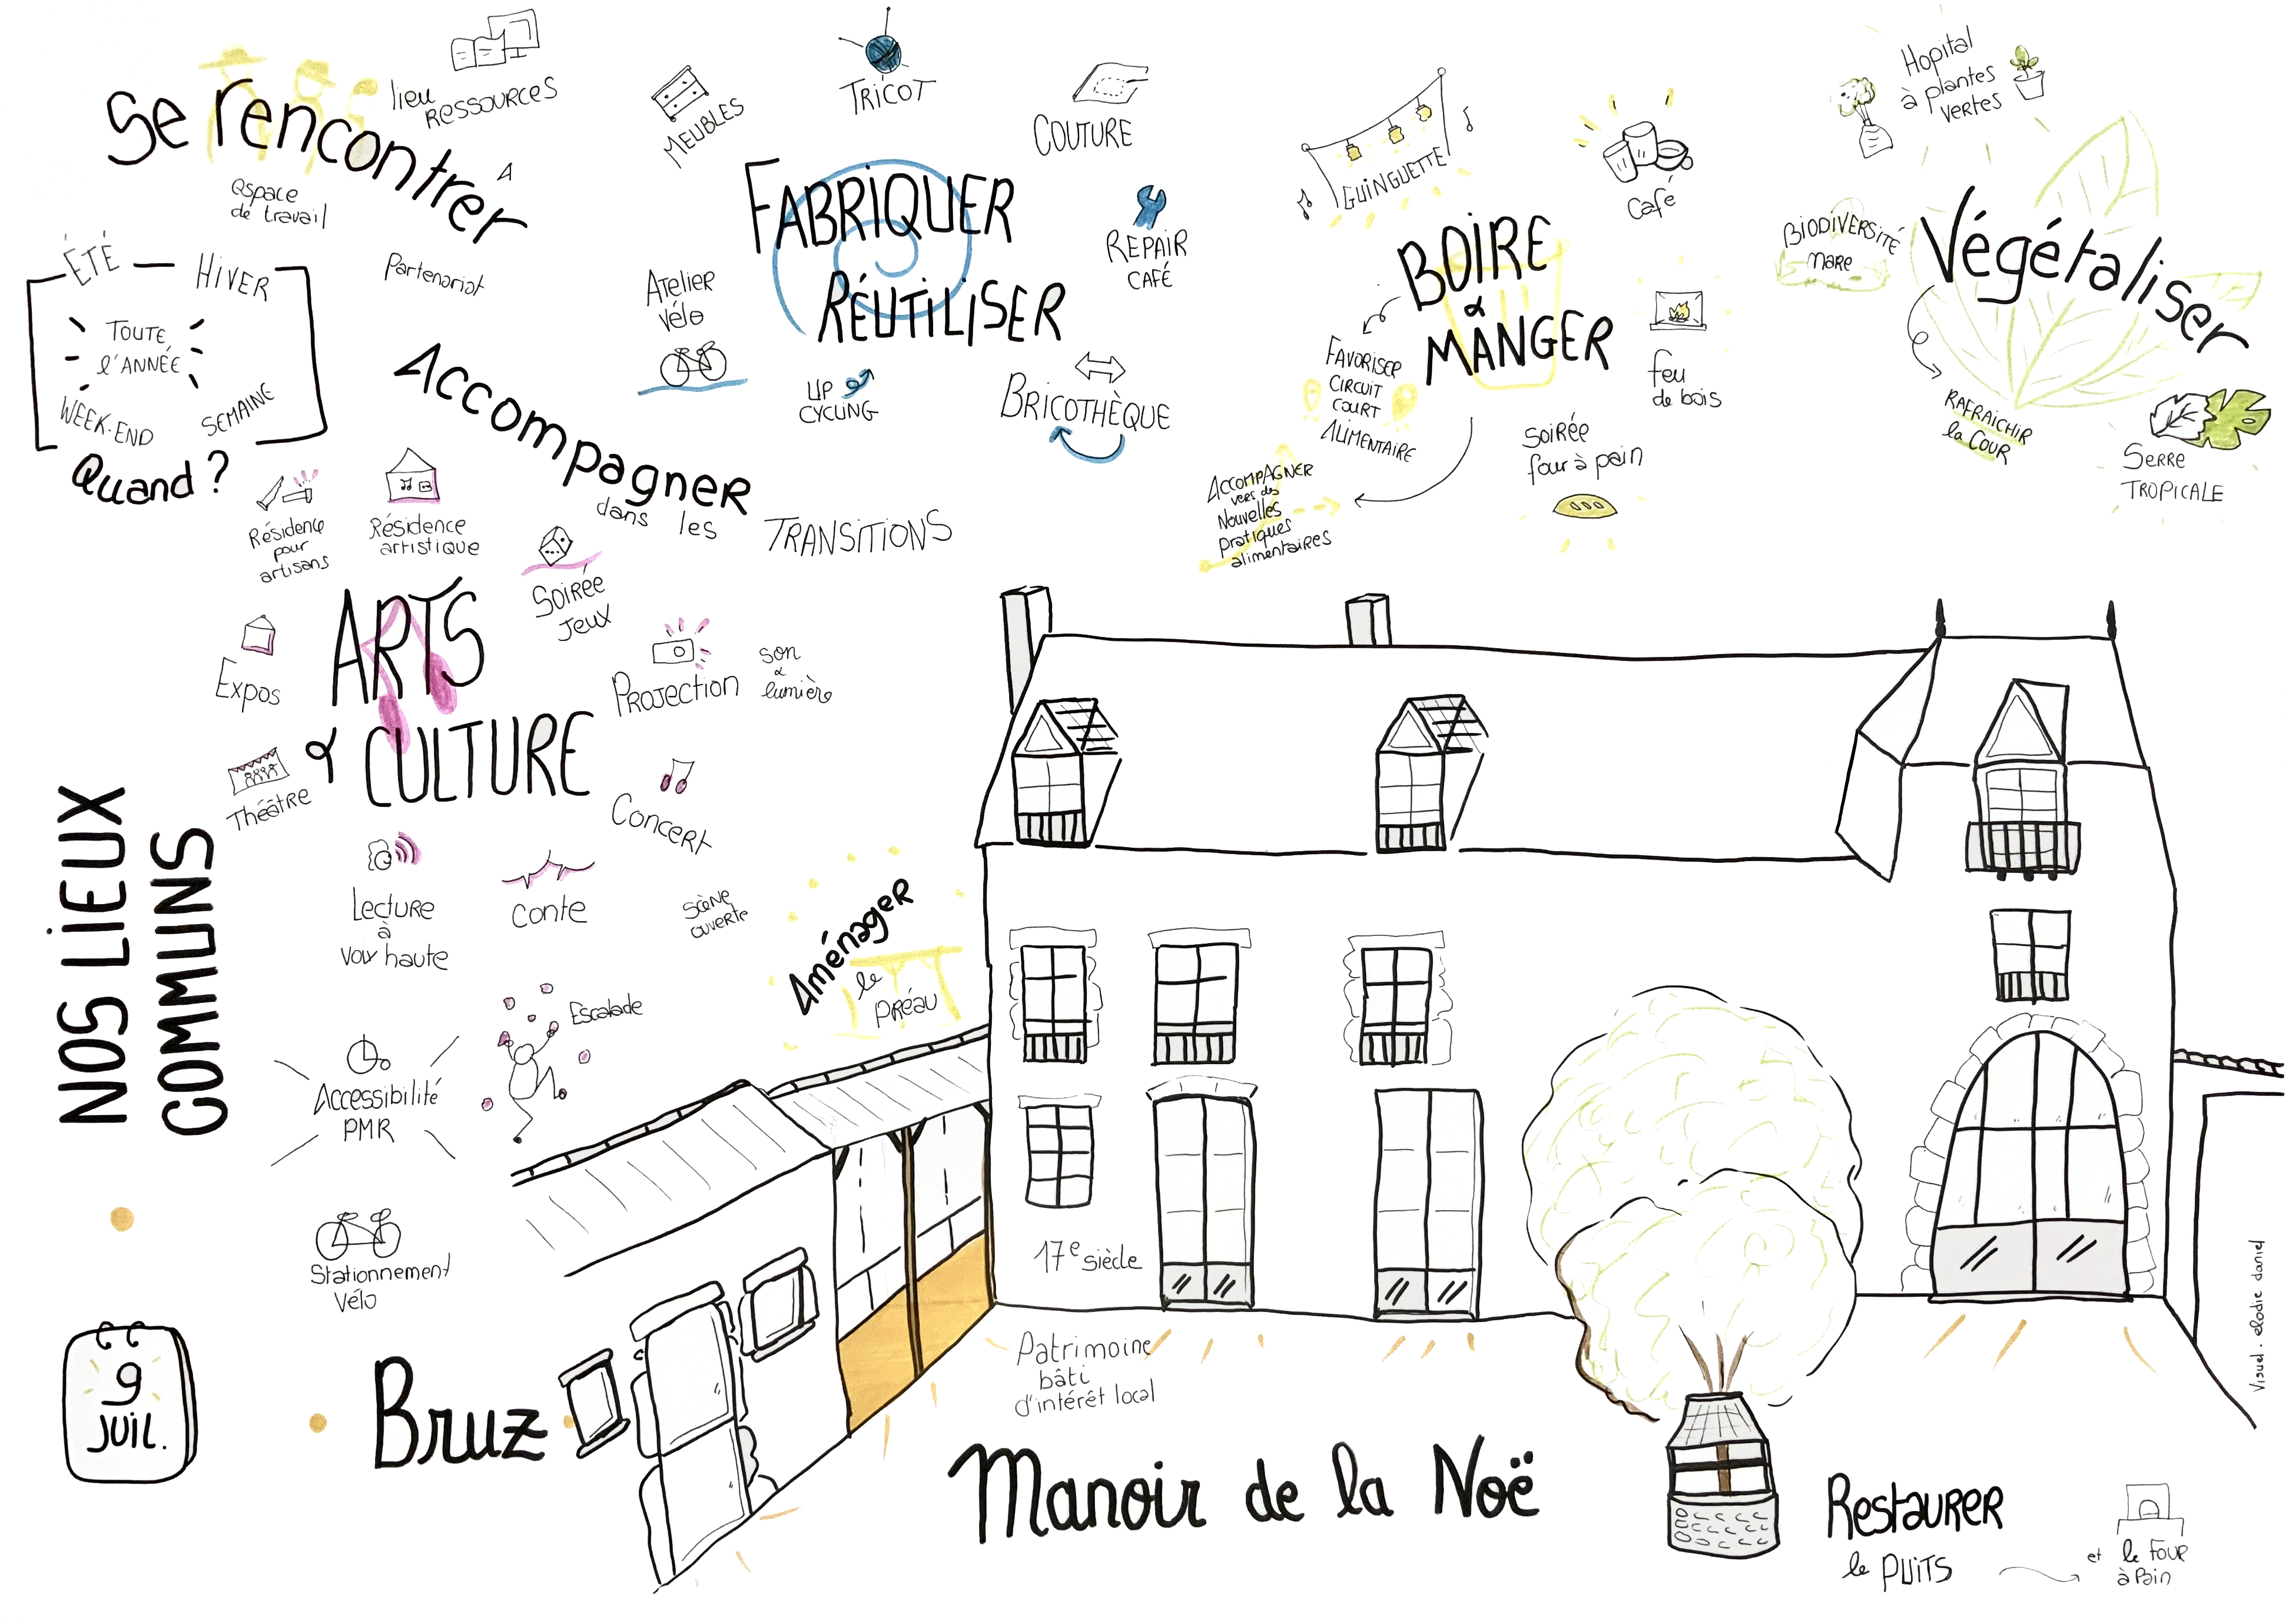 Se rencontrer
lieu
RESSOURCES
espace
de travail
Partenariat
ÉTÉ — HIVER
TOUTE
l'ANNÉE
WEEK-END
SEMAINE
Quand ?
Accompagner
dans les
TRANSITIONS
MEUBLES
TRICOT
COUTURE
FABRIQUER
RÉUTILISER
REPAIR
CAFÉ
ATELIER
Vélo
UP
CYCLING
BRICOTHÈQUE
GUINGUETTE
Café
BOIRE
&
MANGER
FAVORISER
CIRCUIT
COURT
ALIMENTAIRE
feu
de bois
SOIRÉE
four à pain
ACCOMPAGNER
vers des
Nouvelles
pratiques
alimentaires
Hopital
à plantes
vertes
BIODIVERSITÉ
mare
Végétaliser
RAFRAICHIR
la COUR
SERRE
TROPICALE
Résidence
pour
artisans
Résidence
artistique
SOIRÉE
Jeux
ARTS
& CULTURE
Expos
PROJECTION
son
&
lumière
Théâtre
Concert
Lecture
à
voix haute
conte
Scène
ouverte
NOS LIEUX
COMMUNS
Escalade
Accessibilité
PMR
Stationnement
Vélo
Aménager
le
PRÉAU
17e siècle
Patrimoine
bâti
d'intérêt local
9
JUIL.
Bruz
Manoir de la Noë
RESTAURER
le PUITS
et le FOUR
à Pain
Visuel . elodie daniel